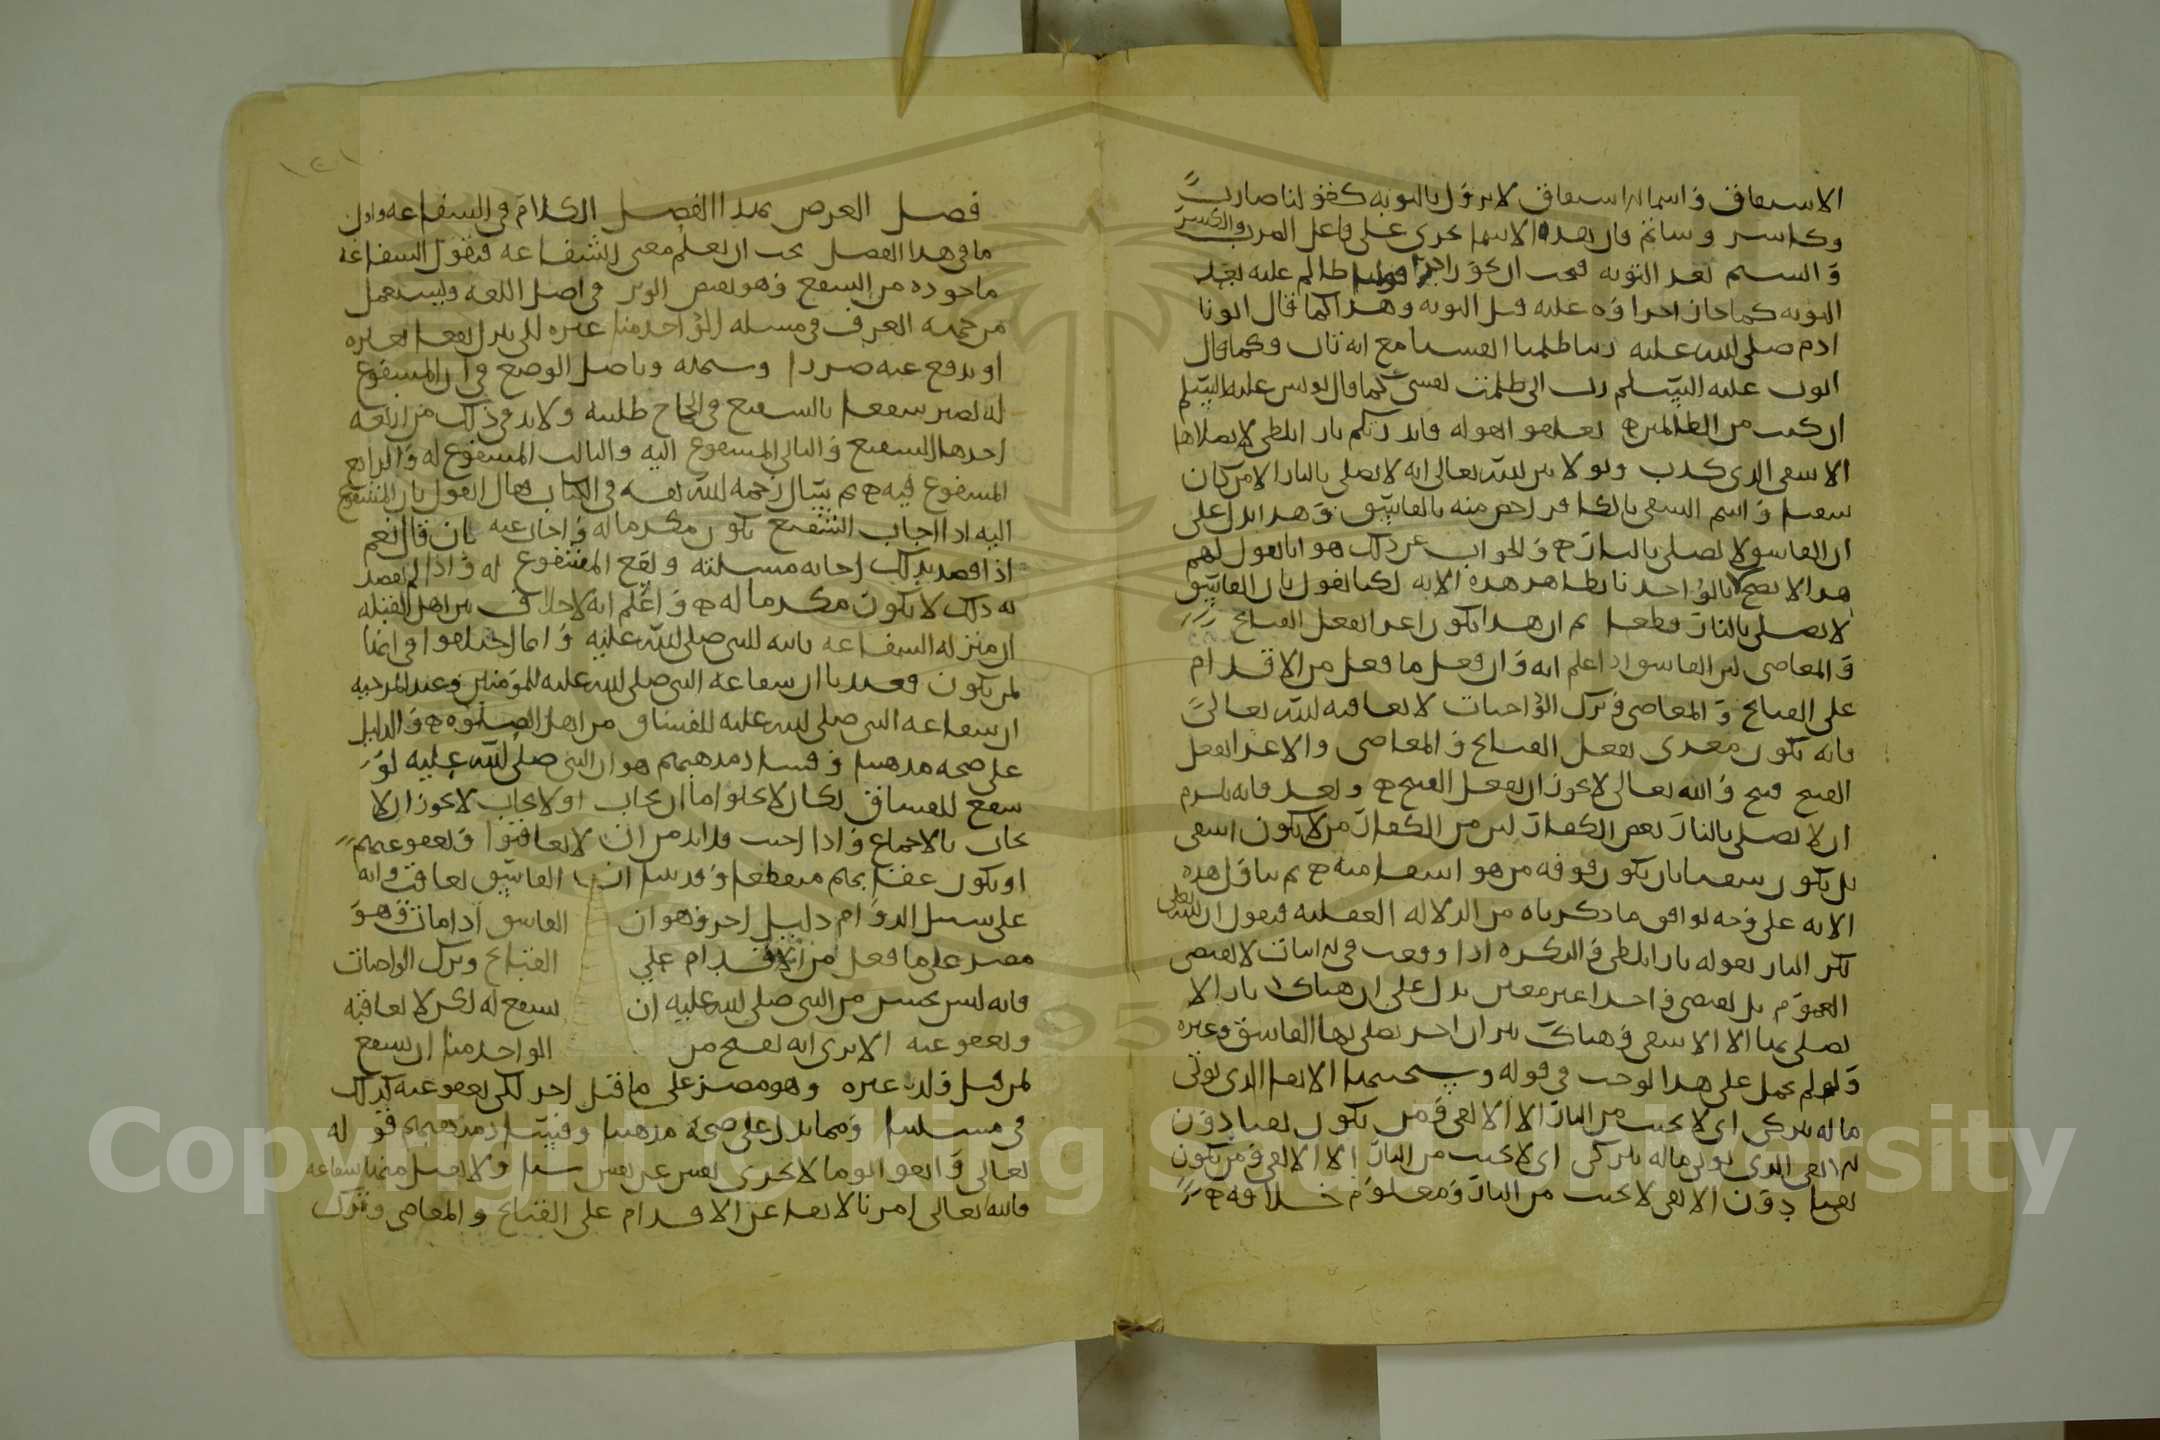 الاستقاق واسما الاستقاق لا يزول بالتوبه كقولنا ضارب
وكاسر وشاتم فان هذه الاسما تجري على فاعل الضرب والكسر
والشتم بعد التوبه فيجب ان يجوز اجرا قولنا ظالم عليه بعد
التوبه كما جاز اجراؤه عليه قبل التوبه وهذا كما قال ابونا
ادم صلى الله عليه ربنا ظلمنا انفسنا مع انه تاب وكما قال
ايوب عليه السلم رب اني ظلمت نفسي كما قال يونس عليه السلم
اني كنت من الظالمين تعلقوا بقوله فانذرتكم نارا تلظى لا يصلاها
الا الاشقى الذي كذب وتولى بين الله تعالى انه لا يصلى بالنار الا من كان
شقيا واسم الشقي بالكافر اخص منه بالفاسق وهذا يدل على
ان الفاسق لا يصلى بالنار والجواب عن ذلك هو انا نقول لهم
هذا لا يصح لانا لو اخذنا بظاهر هذه الايه لكنا نقول بان الفاسق
لا يصلى بالنار قطعا ثم ان هذا يكون اغرا بفعل القبائح
والمعاصي لان الفاسق اذا علم انه وان فعل ما فعل من الاقدام
على القبائح والمعاصي وترك الواجبات لا يعاقبه الله تعالى
فانه يكون مغرى بفعل القبائح والمعاصي والاغرا بفعل
القبيح قبيح والله تعالى لا يجوز ان يفعل القبيح وبعد فانه يلزم
ان لا يصلى بالنار بعض الكفار لان من الكفار من لا يكون اشقى
بل يكون شقيا بان يكون فوقه من هو اشقا منه ثم نتاول هذه
الايه على وجه يوافق ما ذكرناه من الدلاله العقليه فنقول ان الله تعالى
نكر النار بقوله نارا تلظى والنكره اذا وقعت في الاثبات لا تقتضي
العموم بل تقتضي واحدا غير معين يدل على ان هناك نارا لا
يصلى بها الا الاشقى وهناك نيران اخر يصلى بها الفاسق وغيره
ولو لم يحمل على هذا لوجب في قوله وسيجنبها الاتقى الذي يوتي
ماله يتزكى اي لا يجنب من النار الا الاتقى ومن يكون تقيا دون
الاتقى الذي يوتي ماله يتزكى اي لا يجنب من النار الا الاتقى ومن يكون
تقيا دون الاتقى لا يجنب من النار ومعلوم خلافه
فصل الغرض بهذا الفصل الكلام في الشفاعه واول
ما في هذا الفصل يجب ان نعلم معنى الشفاعه فنقول الشفاعه
ماخوذه من الشفع وهو نقيض الوتر في اصل اللغه ويستعمل
من جهه العرف في مسئله الواحد منا غيره لان ينزل نفعا بغيره
او يدفع عنه ضررا وسميته وباصل الوضع في ان المشفوع
له يصير شفعا بالشفيع في انجاح طلبته ولابد في ذلك من اربعه
احدها الشفيع والثاني المشفوع اليه والثالث المشفوع له والرابع
المشفوع فيه ثم سال رحمه الله نفسه في الكتاب فقال القول بان المشفوع
اليه اذا اجاب الشفيع يكون مكرما له واجاب عنه بان قال نعم
اذا قصد بذلك اجابه مسئلته ونفع المشفوع له واذا لم يقصد
به ذلك لا يكون مكرما له واعلم انه لا خلاف بين اهل القبله
ان منزله الشفاعه ثابته للنبي صلى الله عليه وانما اختلفوا في انها
لمن يكون فعندنا ان شفاعه النبي صلى الله عليه للمؤمنين وعند المرجيه
ان شفاعه النبي صلى الله عليه للفساق من اهل الصلوه والدليل
على صحه مذهبنا وفساد مذهبهم هو ان النبي صلى الله عليه لو
شفع للفساق لكان لا يخلو اما ان يجاب او لا يجاب لا يجوز ان لا
يجاب بالاجماع واذا اجيب فلابد من ان لا يعاقبوا ويعفو عنهم
او يكون عقابهم منقطعا وقد بينا ان الفاسق يعاقب وانه
على سبيل الدوام دليل اخر وهو ان الفاسق اذا مات وهو
مصر على ما فعل من الاقدام على القبائح وترك الواجبات
فانه ليس يحسن من النبي صلى الله عليه ان يشفع له لكي لا يعاقبه
ويعفو عنه الا ترى انه يقبح من الواحد منا ان يشفع
لمن قتل ولد غيره وهو مصر على ما قتل اخر لكي يعفو عنه كذلك
في مسئلتنا ومما يدل على صحه مذهبنا وفساد مذهبهم قوله
تعالى واتقوا يوما لا تجزي نفس عن نفس شيا ولا يقبل منها شفاعه
فالله تعالى امرنا لاتقا عن الاقدام على القبائح والمعاصي وترك
Copyright © King Saud University